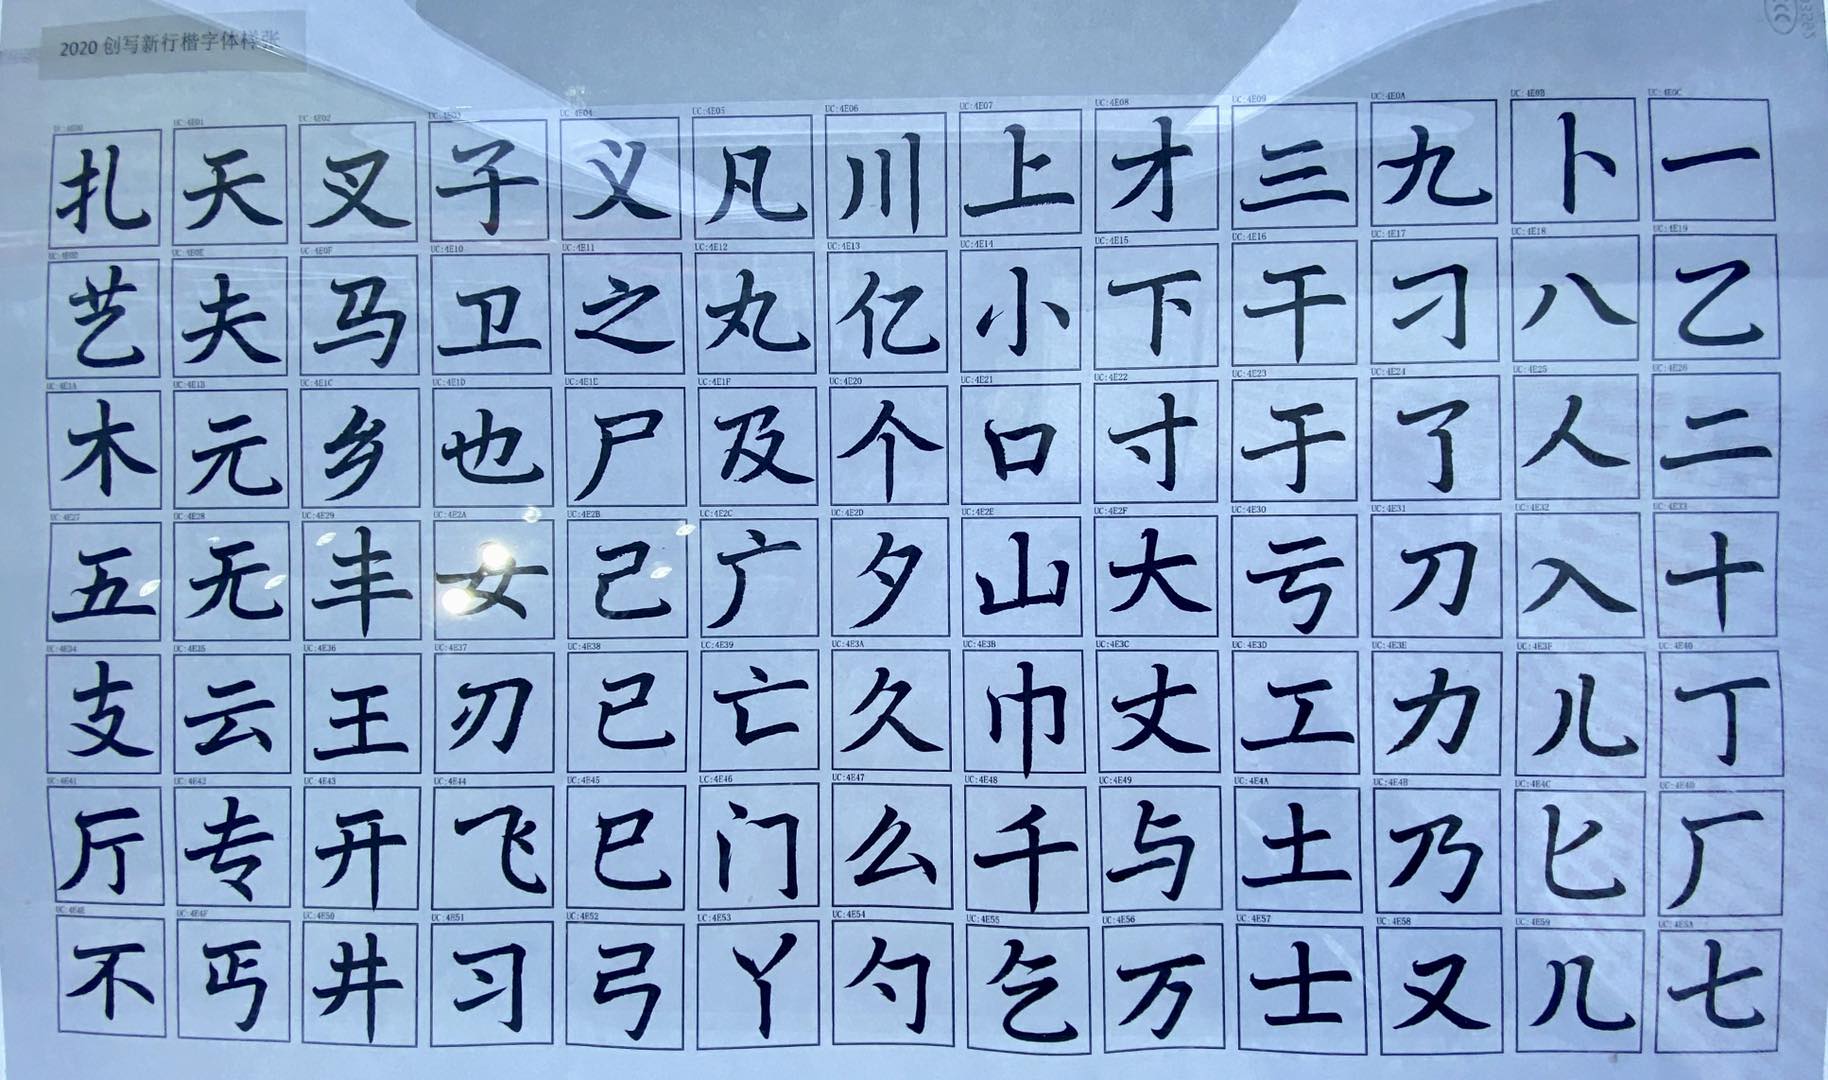 2020 创写新行楷字体样张
UC:4E00 UC:4E01 UC:4E02 UC:4E03 UC:4E04 UC:4E05 UC:4E06 UC:4E07 UC:4E08 UC:4E09 UC:4E0A UC:4E0B UC:4E0C
扎 天 叉 子 义 凡 川 上 才 三 九 卜 一
UC:4E0D UC:4E0E UC:4E0F UC:4E10 UC:4E11 UC:4E12 UC:4E13 UC:4E14 UC:4E15 UC:4E16 UC:4E17 UC:4E18 UC:4E19
艺 夫 马 卫 之 丸 亿 小 下 干 刁 八 乙
UC:4E1A UC:4E1B UC:4E1C UC:4E1D UC:4E1E UC:4E1F UC:4E20 UC:4E21 UC:4E22 UC:4E23 UC:4E24 UC:4E25 UC:4E26
木 元 乡 也 尸 及 个 口 寸 于 了 人 二
UC:4E27 UC:4E28 UC:4E29 UC:4E2A UC:4E2B UC:4E2C UC:4E2D UC:4E2E UC:4E2F UC:4E30 UC:4E31 UC:4E32 UC:4E33
五 无 丰 女 己 广 夕 山 大 亏 刀 入 十
UC:4E34 UC:4E35 UC:4E36 UC:4E37 UC:4E38 UC:4E39 UC:4E3A UC:4E3B UC:4E3C UC:4E3D UC:4E3E UC:4E3F UC:4E40
支 云 王 刃 已 亡 久 巾 丈 工 力 儿 丁
UC:4E41 UC:4E42 UC:4E43 UC:4E44 UC:4E45 UC:4E46 UC:4E47 UC:4E48 UC:4E49 UC:4E4A UC:4E4B UC:4E4C UC:4E4D
厅 专 开 飞 巳 门 么 千 与 土 乃 匕 厂
UC:4E4E UC:4E4F UC:4E50 UC:4E51 UC:4E52 UC:4E53 UC:4E54 UC:4E55 UC:4E56 UC:4E57 UC:4E58 UC:4E59 UC:4E5A
不 丐 井 习 弓 丫 勺 乞 万 士 又 几 七